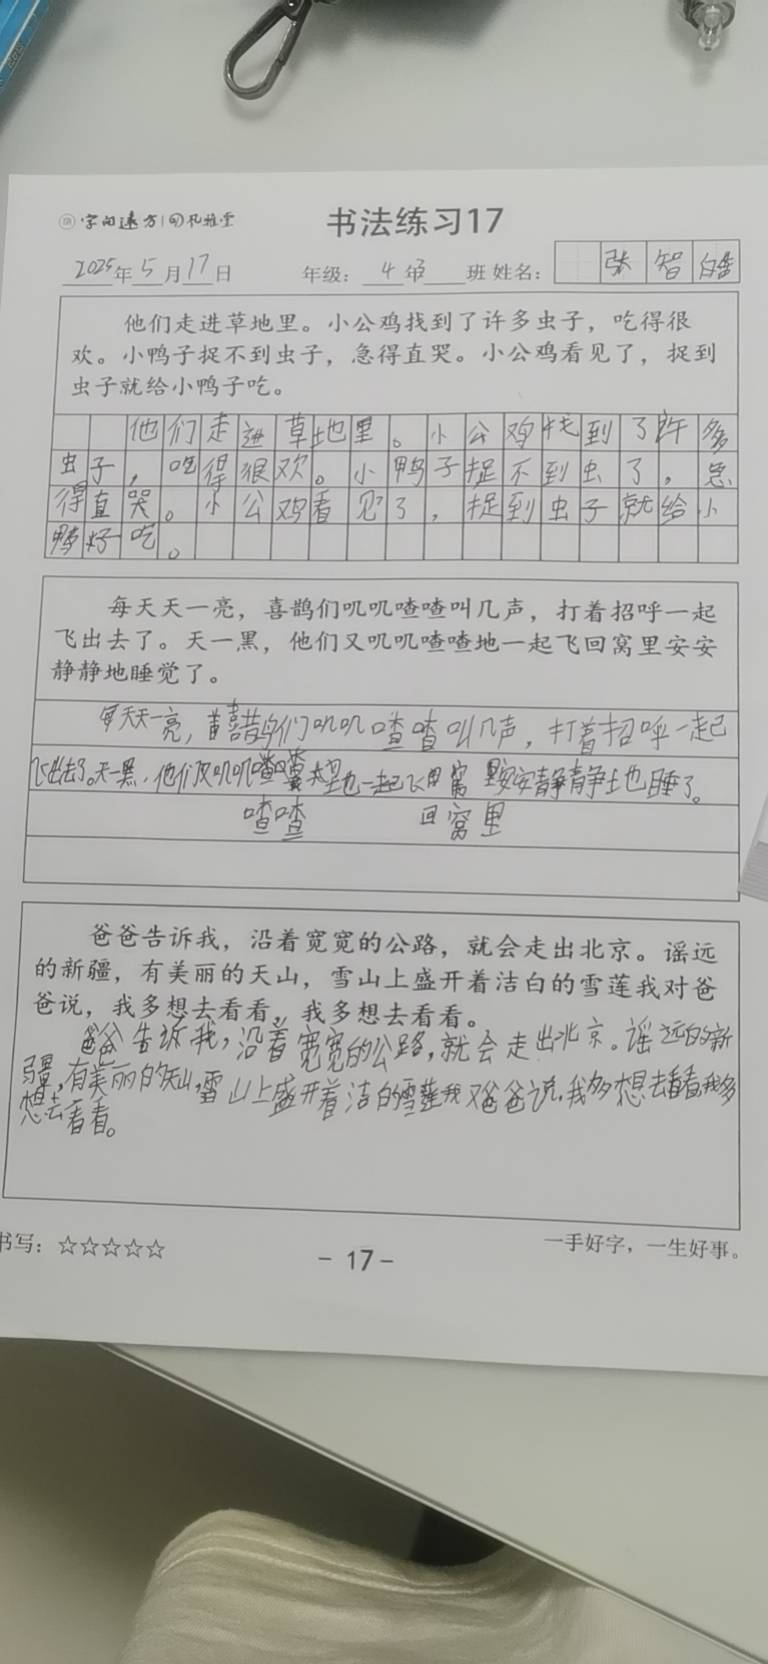 字的遠方
书法练习17
2025年5月17日 年级：4年3班 姓名：张智皓
他们走进草地里。小公鸡找到了许多虫子，吃得很
欢。小鸭子捉不到虫子，急得直哭。小公鸡看见了，捉到
虫子就给小鸭子吃。
他们走进草地里。小公鸡找到了许多
虫子，吃得很欢。小鸭子捉不到虫了，急
得直哭。小公鸡看见了，捉到虫子就给小
鸭子吃。
每天天一亮，喜鹊们叽叽喳喳叫几声，打着招呼一起
飞出去了。天一黑，他们又叽叽喳喳地一起飞回窝里安安
静静地睡觉了。
每天天一亮，喜鹊们叽叽喳喳叫几声，打着招呼一起
飞出去了。天一黑，他们又叽叽喳喳地一起飞回窝里安安静静地睡了。
喳喳 回窝里
爸爸告诉我，沿着宽宽的公路，就会走出北京。谣远
的新疆，有美丽的天山，雪山上盛开着洁白的雪莲我对爸
爸说，我多想去看看，我多想去看看。
爸爸告诉我，沿着宽宽的公路，就会走出北京。谣远的新
疆，有美丽的天山，雪山上盛开着洁白的雪莲我对爸爸说，我多想去看看，我多
想去看看。
书写：☆☆☆☆☆
一手好字，一生好事。
- 17 -